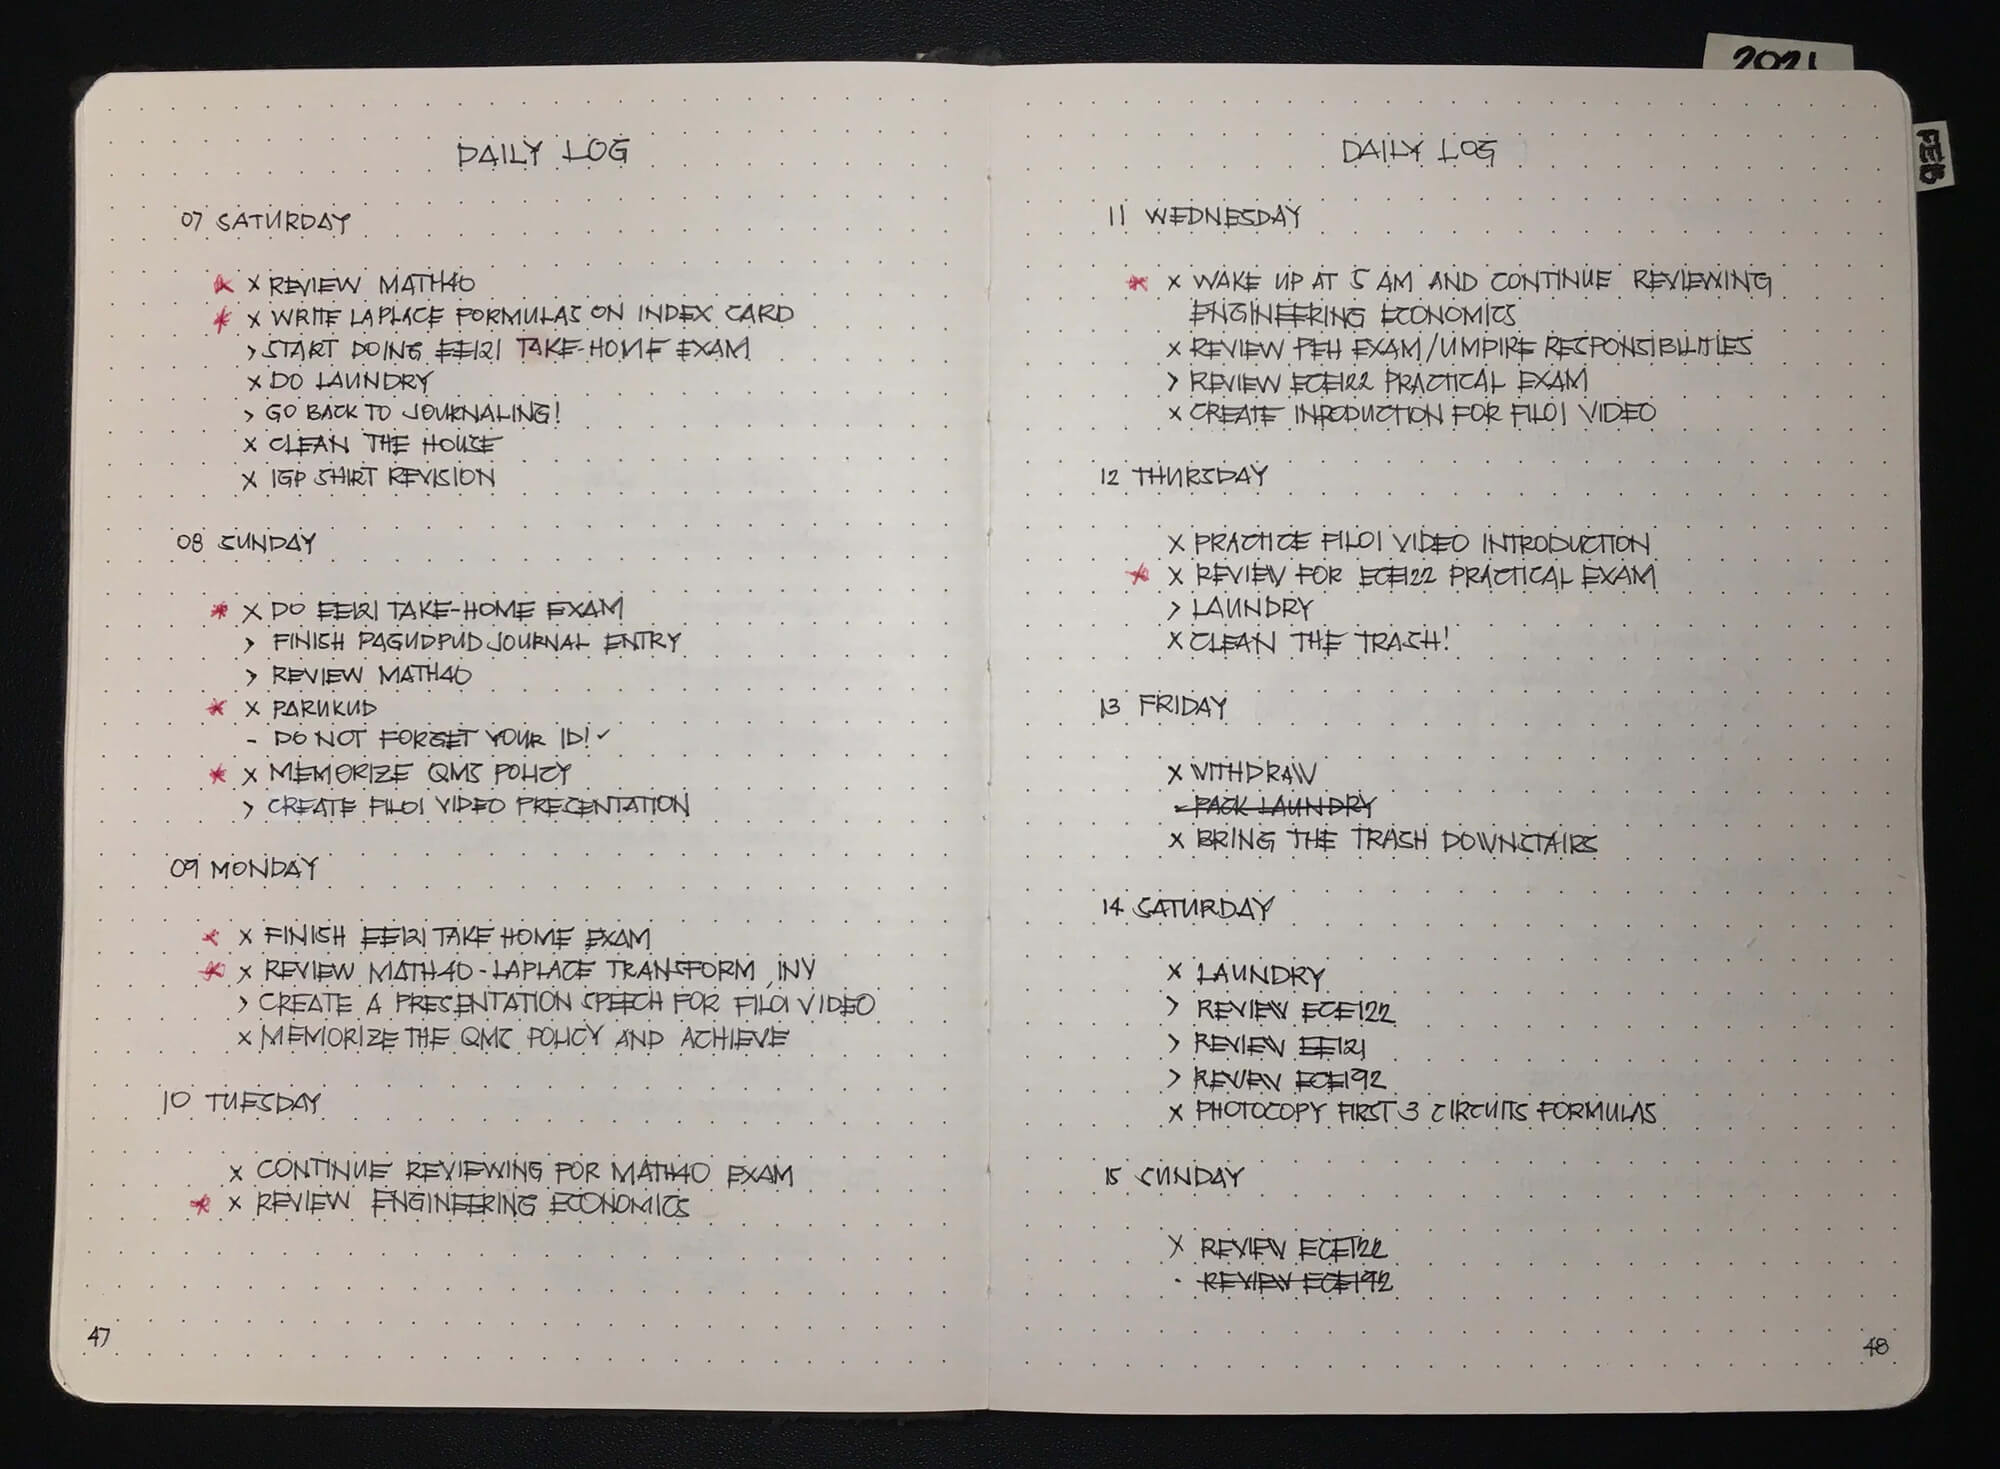 2021
FEB
DAILY LOG
07 SATURDAY
* X REVIEW MATH40
* X WRITE LAPLACE FORMULAS ON INDEX CARD
> START DOING EE121 TAKE-HOME EXAM
X DO LAUNDRY
> GO BACK TO JOURNALING!
X CLEAN THE HOUSE
X IGP SHIRT REVISION
08 SUNDAY
* X DO EE121 TAKE-HOME EXAM
> FINISH PAGUDPUD JOURNAL ENTRY
> REVIEW MATH40
* X PARUKUD
- DO NOT FORGET YOUR ID! ✓
* X MEMORIZE QMS POLICY
> CREATE FIL01 VIDEO PRESENTATION
09 MONDAY
* X FINISH EE121 TAKE HOME EXAM
* X REVIEW MATH40 - LAPLACE TRANSFORM, INV
> CREATE A PRESENTATION SPEECH FOR FIL01 VIDEO
X MEMORIZE THE QMS POLICY AND ACHIEVE
10 TUESDAY
X CONTINUE REVIEWING FOR MATH40 EXAM
* X REVIEW ENGINEERING ECONOMICS
47
DAILY LOG
11 WEDNESDAY
* X WAKE UP AT 5 AM AND CONTINUE REVIEWING
ENGINEERING ECONOMICS
X REVIEW PEH EXAM/UMPIRE RESPONSIBILITIES
> REVIEW ECE122 PRACTICAL EXAM
X CREATE INRODUCTION FOR FIL01 VIDEO
12 THURSDAY
X PRACTICE FIL01 VIDEO INTRODUCTION
* X REVIEW FOR ECE122 PRACTICAL EXAM
> LAUNDRY
X CLEAN THE TRASH!
13 FRIDAY
X WITHDRAW
- PACK LAUNDRY
X BRING THE TRASH DOWNSTAIRS
14 SATURDAY
X LAUNDRY
> REVIEW ECE122
> REVIEW EE121
> REVIEW ECE192
X PHOTOCOPY FIRST 3 CIRCUITS FORMULAS
15 SUNDAY
X REVIEW ECE122
· REVIEW ECE192
48